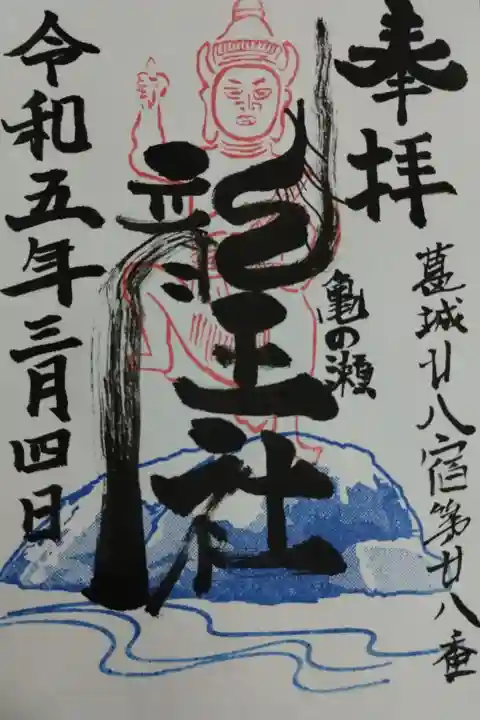 奉拝
葛城廿八宿第廿八番
亀の瀬
龍王社
令和五年三月四日